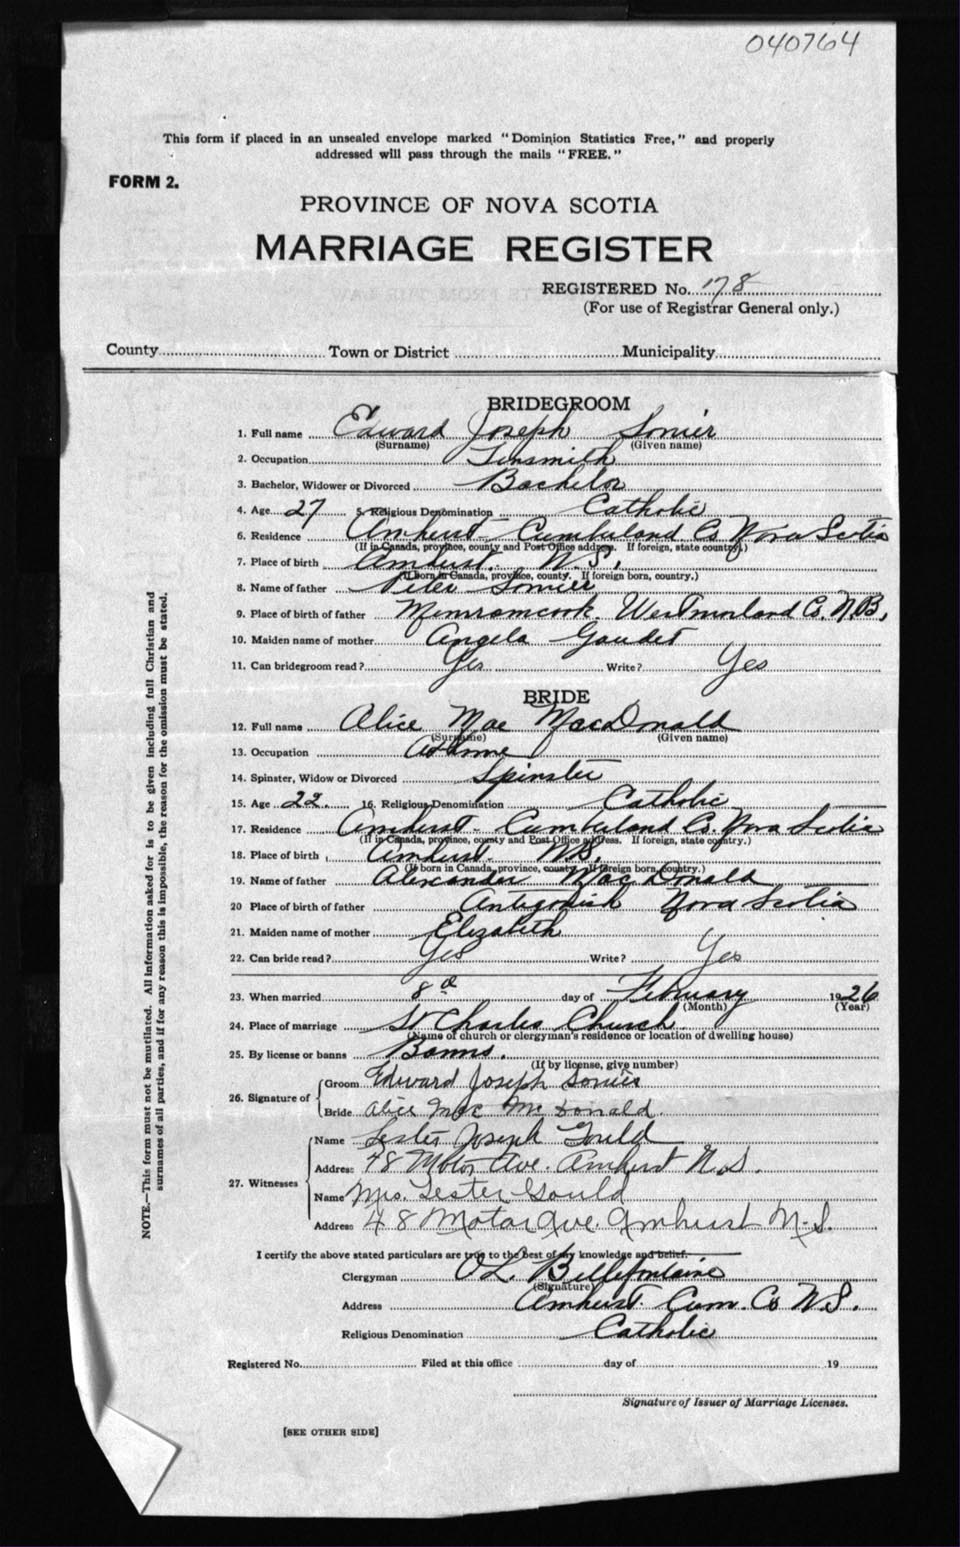 040764
This form if placed in an unsealed envelope marked "Dominion Statistics Free," and properly
addressed will pass through the mails "FREE."
FORM 2.
PROVINCE OF NOVA SCOTIA
MARRIAGE REGISTER
REGISTERED No. 178
(For use of Registrar General only.)
County Town or District Municipality
BRIDEGROOM
1. Full name Edward Joseph Somier
(Surname) (Given name)
2. Occupation Tinsmith
3. Bachelor, Widower or Divorced Bachelor
4. Age 27 5. Religious Denomination Catholic
6. Residence Amherst Cumberland Co Nova Scotia
(If in Canada, province, county and Post Office address. If foreign, state country.)
7. Place of birth Amherst. N.S,
(If born in Canada, province, county. If foreign born, country.)
8. Name of father Peter Somier
9. Place of birth of father Memramcook. Westmorland Co. N.B,
10. Maiden name of mother Angela Gaudet
11. Can bridegroom read? Yes Write? Yes
BRIDE
12. Full name Alice Mae MacDonald
(Surname) (Given name)
13. Occupation At Home
14. Spinster, Widow or Divorced Spinster
15. Age 22. 16. Religious Denomination Catholic
17. Residence Amherst- Cumberland Co. Nova Scotia
(If in Canada, province, county and Post Office address. If foreign, state country.)
18. Place of birth Amherst. N.S,
(If born in Canada, province, county. If foreign born, country.)
19. Name of father Alexander MacDonald
20 Place of birth of father Antigonish Nova Scotia
21. Maiden name of mother Elizabeth
22. Can bride read? Yes Write? Yes
23. When married 8th day of February 1926
(Month) (Year)
24. Place of marriage St Charles Church
(Name of church or clergyman's residence or location of dwelling house)
25. By license or banns Banns.
(If by license, give number)
26. Signature of Groom Edward Joseph Somier
Bride Alice Mae McDonald.
27. Witnesses Name Lester Joseph Gould
Address 48 Motor Ave. Amherst N.S.
Name Mrs. Lester Gould
Address 48 Motor Ave. Amherst N.S.
I certify the above stated particulars are true to the best of my knowledge and belief.
Clergyman O L. Bellefontaine
(Signature)
Address Amherst. Cum. Co N.S.
Religious Denomination Catholic
Registered No. Filed at this office day of 19
Signature of Issuer of Marriage Licenses.
[SEE OTHER SIDE]
NOTE.—This form must not be mutilated. All information asked for is to be given including full Christian and
surnames of all parties, and if for any reason this is impossible, the reason for the omission must be stated.